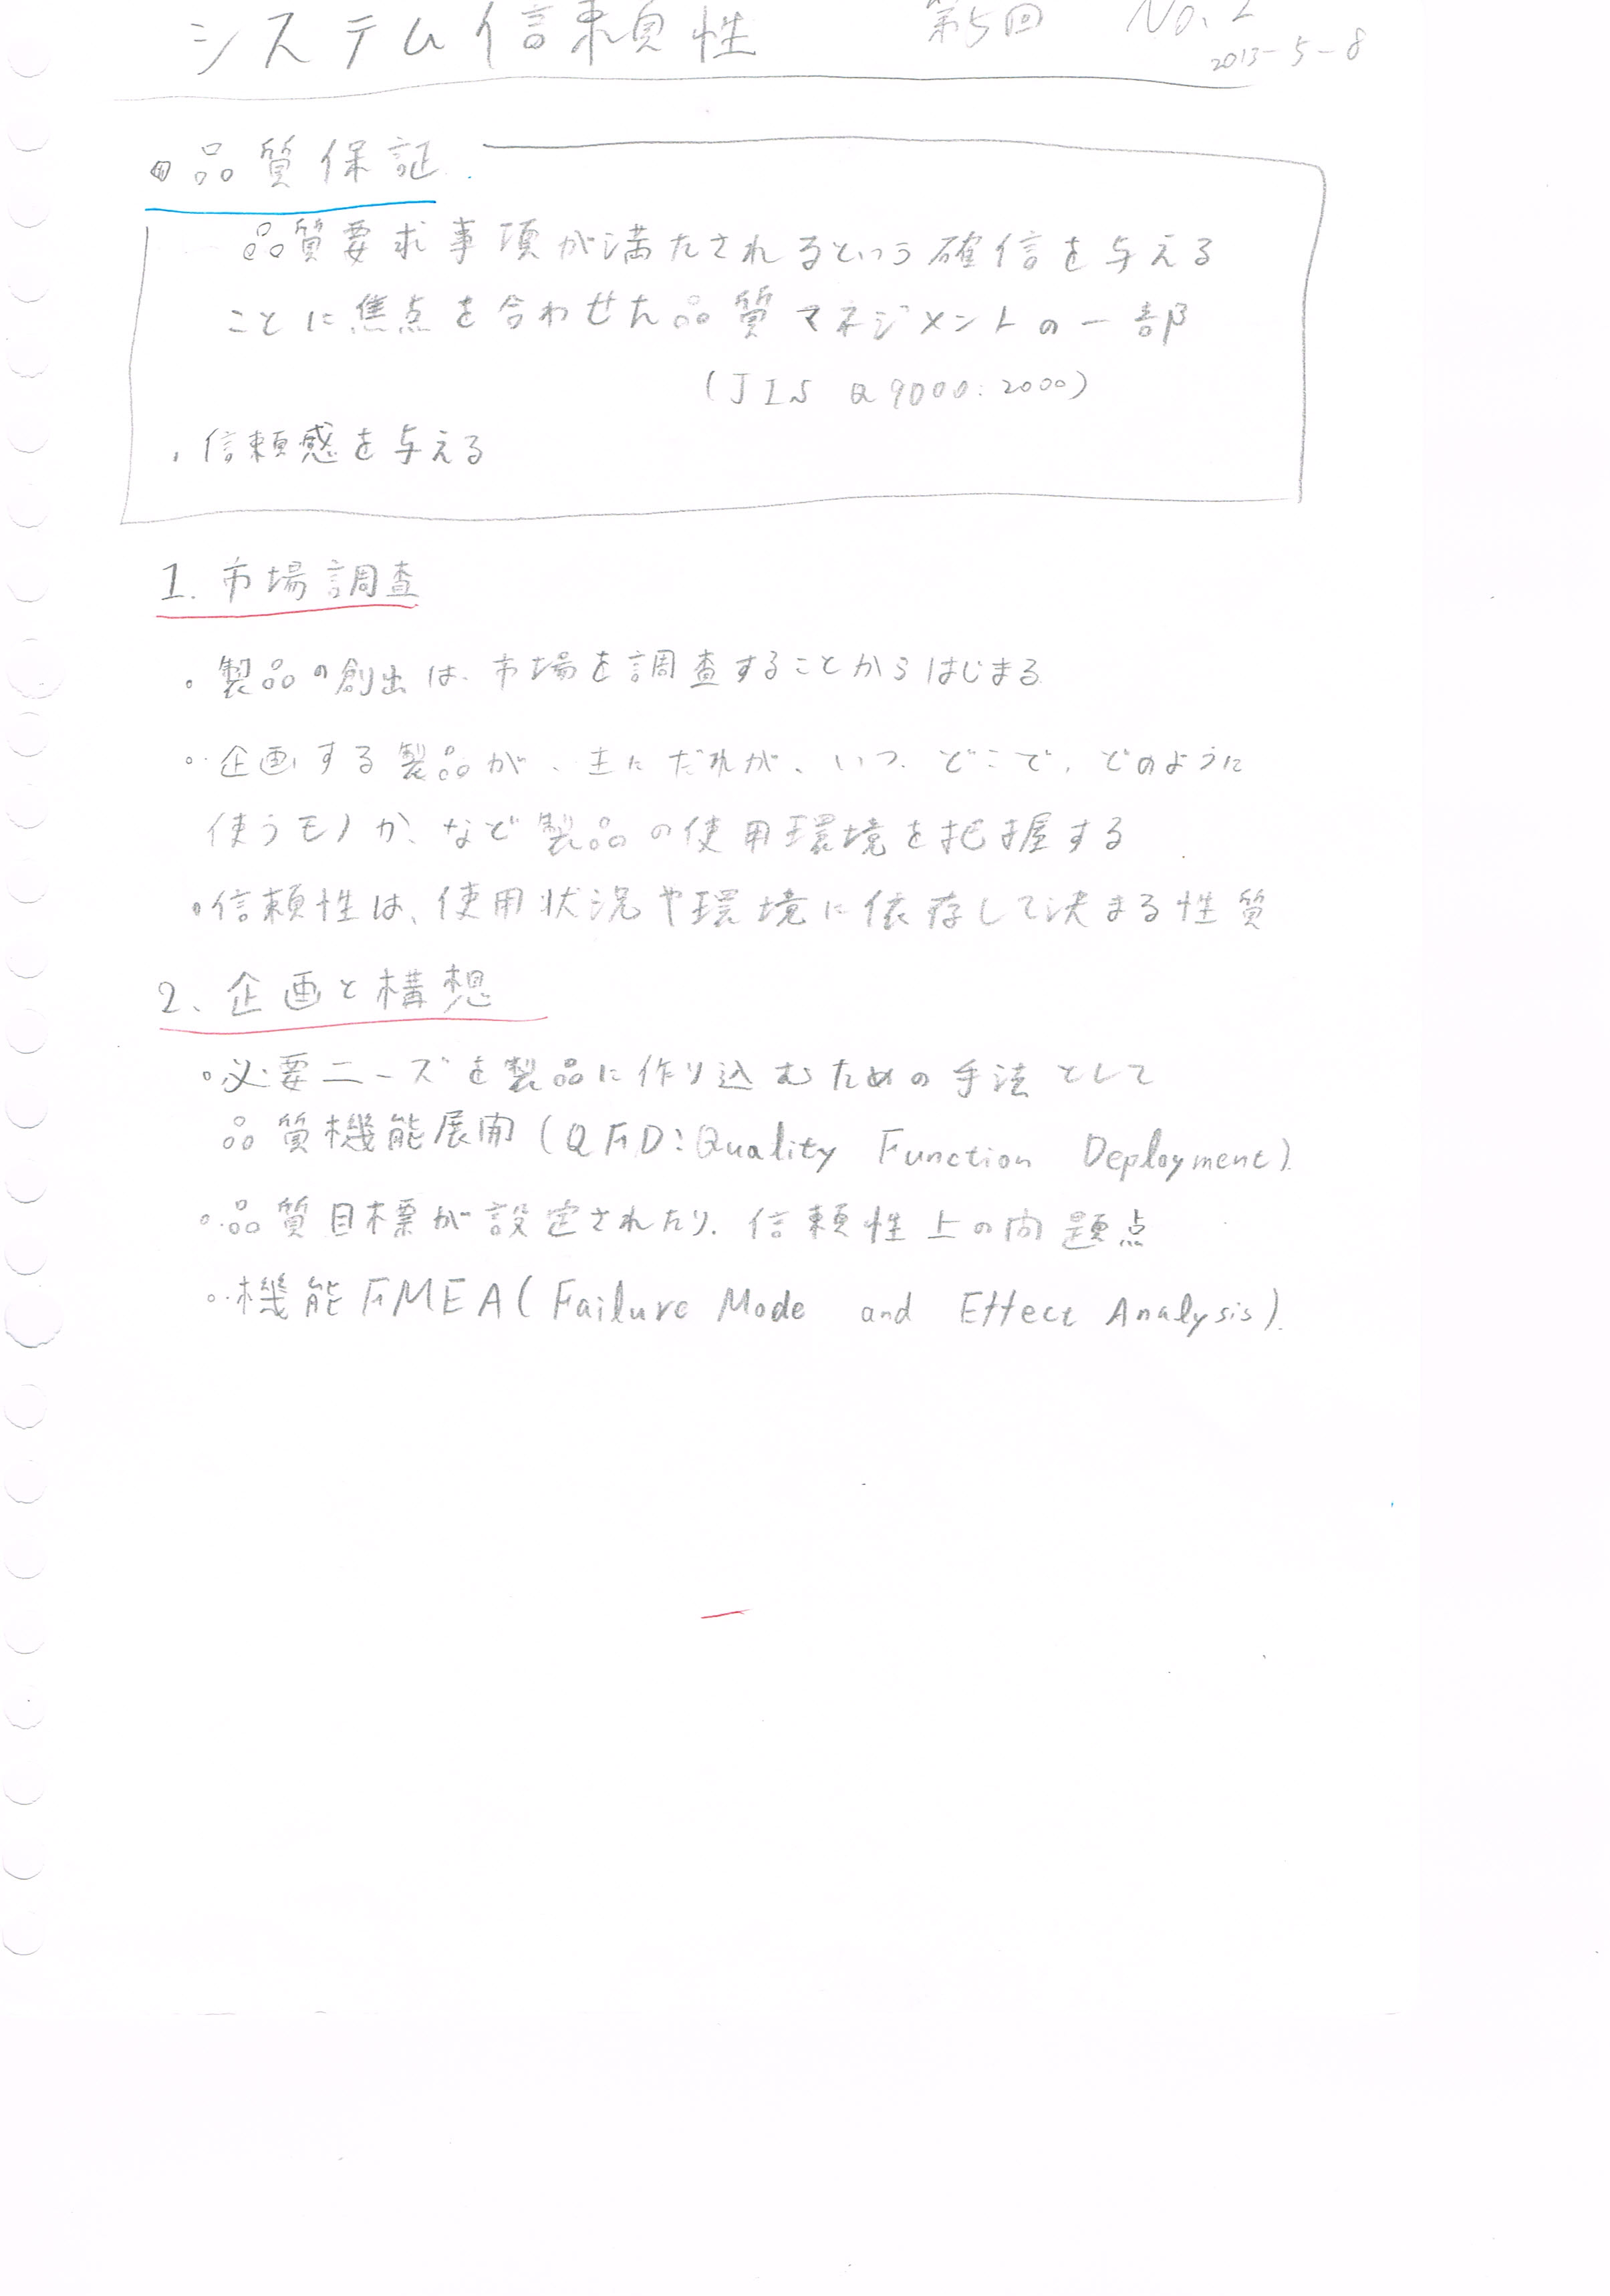 システム信頼性 第5回 No.2
2013-5-8
品質保証
品質要求事項が満たされるという確信を与える
ことに焦点を合わせた品質マネジメントの一部
(JIS Q 9000:2000)
・信頼感を与える
1. 市場調査
・製品の創出は、市場を調査することからはじまる
・企画する製品が、主にだれが、いつ、どこで、どのように
使うモノか、など製品の使用環境を把握する
・信頼性は、使用状況や環境に依存して決まる性質
2、企画と構想
・必要ニーズを製品に作り込むための手法として
品質機能展開(QFD:Quality Function Deployment)
・品質目標が設定されたり、信頼性上の問題点
・機能FMEA(Failure Mode and Effect Analysis)